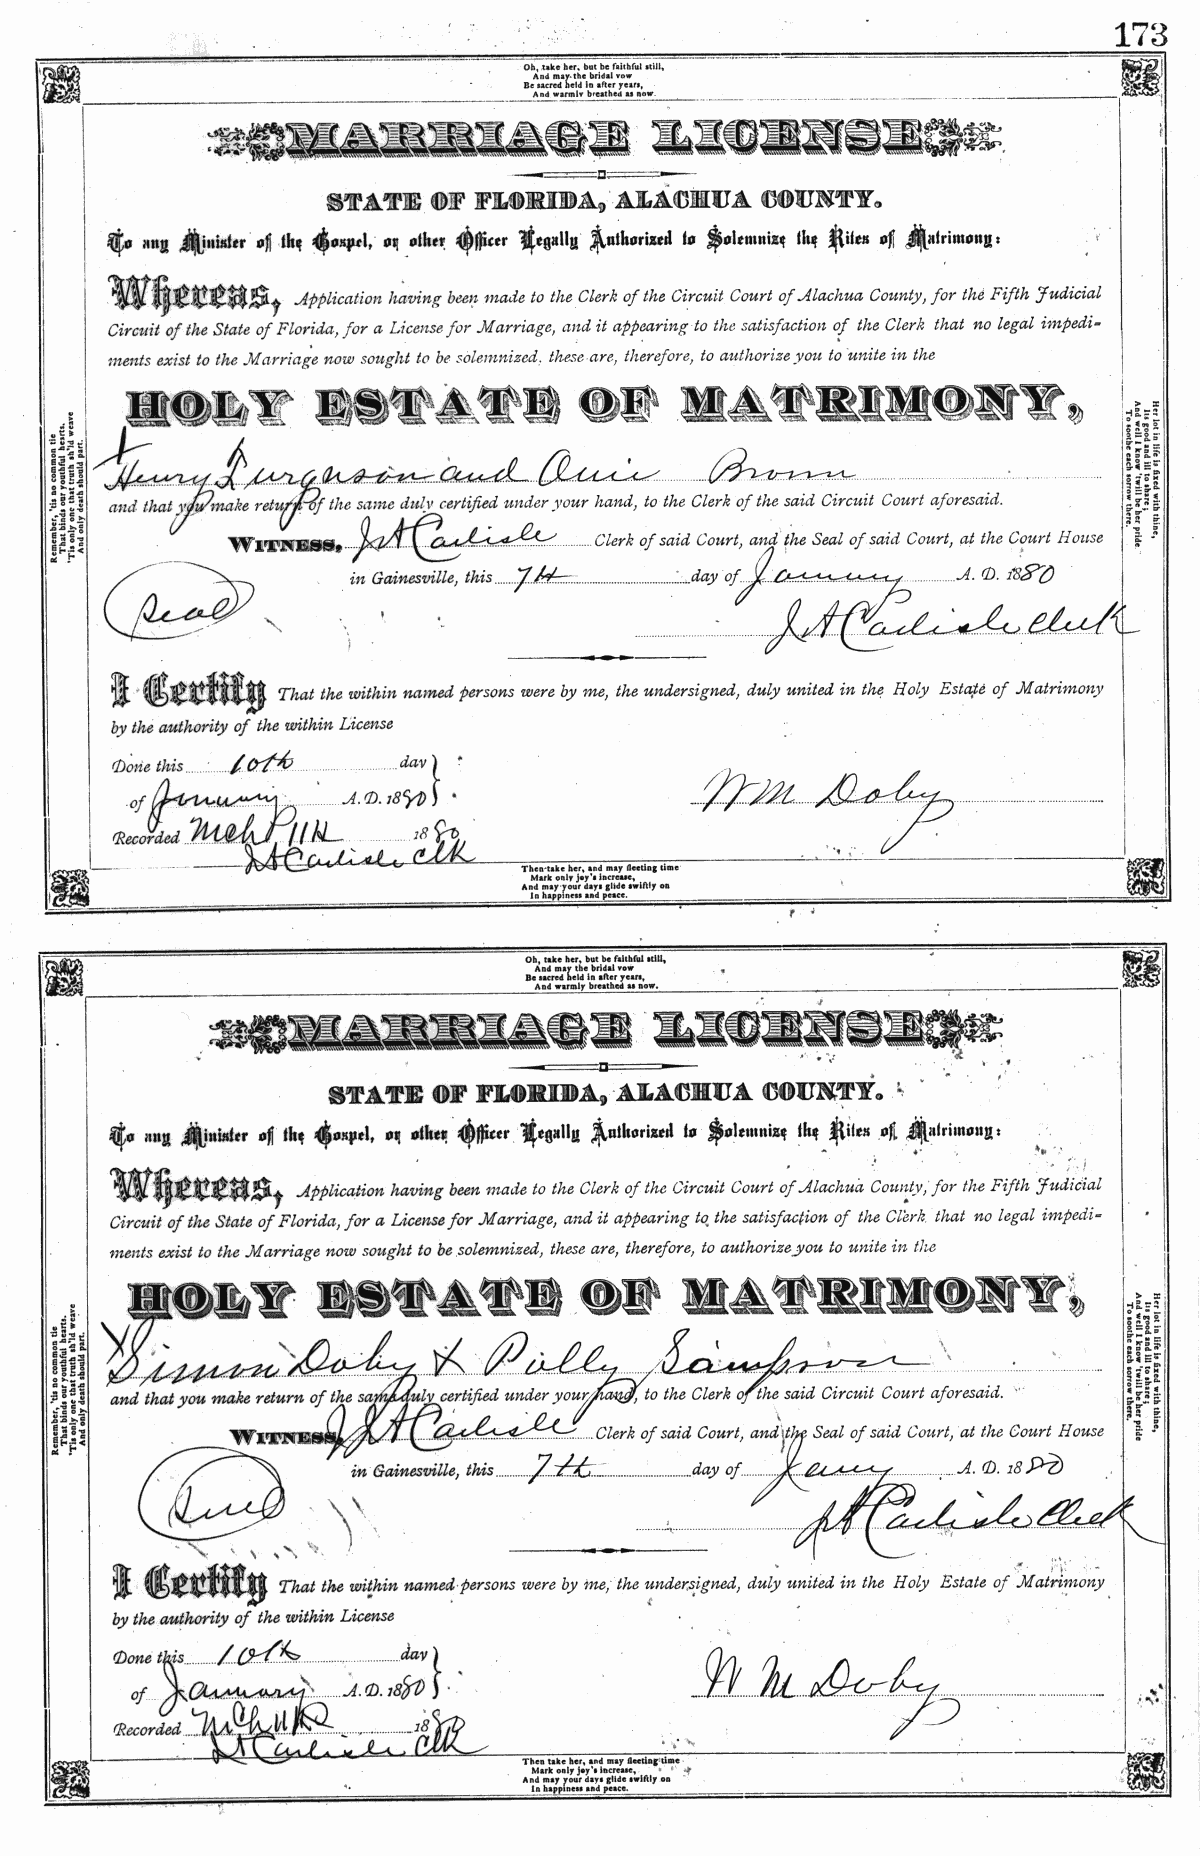 173
Oh, take her, but be faithful still,
And may the bridal vow
Be sacred held in after years,
And warmly breathed as now.
MARRIAGE LICENSE
STATE OF FLORIDA, ALACHUA COUNTY.
To any Minister of the Gospel, or other Officer Legally Authorized to Solemnize the Rites of Matrimony:
Whereas, Application having been made to the Clerk of the Circuit Court of Alachua County, for the Fifth Judicial
Circuit of the State of Florida, for a License for Marriage, and it appearing to the satisfaction of the Clerk that no legal impedi-
ments exist to the Marriage now sought to be solemnized, these are, therefore, to authorize you to unite in the
HOLY ESTATE OF MATRIMONY,
Henry Furgnson and Brown
and that you make return of the same duly certified under your hand, to the Clerk of the said Circuit Court aforesaid.
WITNESS, J A Carlisle Clerk of said Court, and the Seal of said Court, at the Court House
in Gainesville, this 7th day of January A. D. 1880
Seal
J A Carlisle Clerk
I Certify That the within named persons were by me, the undersigned, duly united in the Holy Estate of Matrimony
by the authority of the within License
Done this 10th day
of January A. D. 1880
Wm Doby
Recorded Mch 11th 1880
J A Carlisle Clk
Then take her, and may fleeting time
Mark only joy's increase,
And may your days glide swiftly on
In happiness and peace.
Remember, 'tis no common tie
That binds our youthful hearts,
'Tis only one that truth sh'ld weave
And only death should part.
Her lot in life is fixed with thine,
Its good and ill to share;
And well I know 'twill be her pride
To soothe each sorrow there.
Oh, take her, but be faithful still,
And may the bridal vow
Be sacred held in after years,
And warmly breathed as now.
MARRIAGE LICENSE
STATE OF FLORIDA, ALACHUA COUNTY.
To any Minister of the Gospel, or other Officer Legally Authorized to Solemnize the Rites of Matrimony:
Whereas, Application having been made to the Clerk of the Circuit Court of Alachua County, for the Fifth Judicial
Circuit of the State of Florida, for a License for Marriage, and it appearing to the satisfaction of the Clerk that no legal impedi-
ments exist to the Marriage now sought to be solemnized, these are, therefore, to authorize you to unite in the
HOLY ESTATE OF MATRIMONY,
Simon Doby & Polly Sampson
and that you make return of the same duly certified under your hand, to the Clerk of the said Circuit Court aforesaid.
WITNESS, J A Carlisle Clerk of said Court, and the Seal of said Court, at the Court House
in Gainesville, this 7th day of Jany A. D. 1880
Seal
J A Carlisle Clerk
I Certify That the within named persons were by me, the undersigned, duly united in the Holy Estate of Matrimony
by the authority of the within License
Done this 10th day
of January A. D. 1880
W M Doby
Recorded Mch 11th 1880
J A Carlisle Clk
Then take her, and may fleeting time
Mark only joy's increase,
And may your days glide swiftly on
In happiness and peace.
Remember, 'tis no common tie
That binds our youthful hearts,
'Tis only one that truth sh'ld weave
And only death should part.
Her lot in life is fixed with thine,
Its good and ill to share;
And well I know 'twill be her pride
To soothe each sorrow there.